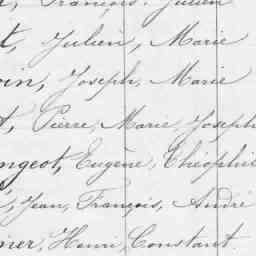 François, Julien
t, Julien, Marie
oin, Joseph, Marie
t, Pierre, Marie, Joseph
ngeot, Eugène, Théophil
, Jean, François, André
ner, Henri, Constant